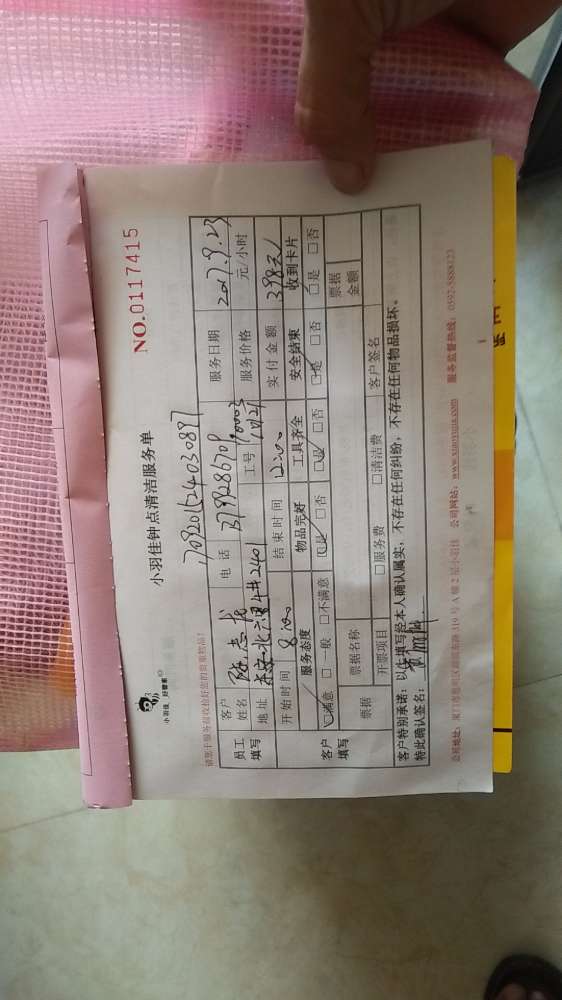 小羽佳 好管家
小羽佳钟点清洁服务单
NO.0117415
请您于服务前收捡好您的贵重物品!
员工填写 客户姓名 陈志龙 电话 服务日期 2017.9.23
地址 工号 服务价格 元/小时
开始时间 8:00 结束时间 12:00 实付金额 398元
客户填写 服务态度 物品完好 工具齐全 安全结束 收到卡片
□满意 □一般 □不满意 □是 □否 □是 □否 □是 □否 □是 □否
票据 票据名称 票据金额
开票项目 □服务费 □清洁费 客户签名
客户特别承诺:以上填写经本人确认属实,不存在任何纠纷,不存在任何物品损坏。
特此确认签名:
公司地址:厦门市思明区湖滨东路319号A幢2层小羽佳 公司网站:www.xiaoyujia.com 服务监督热线:0592-5888123